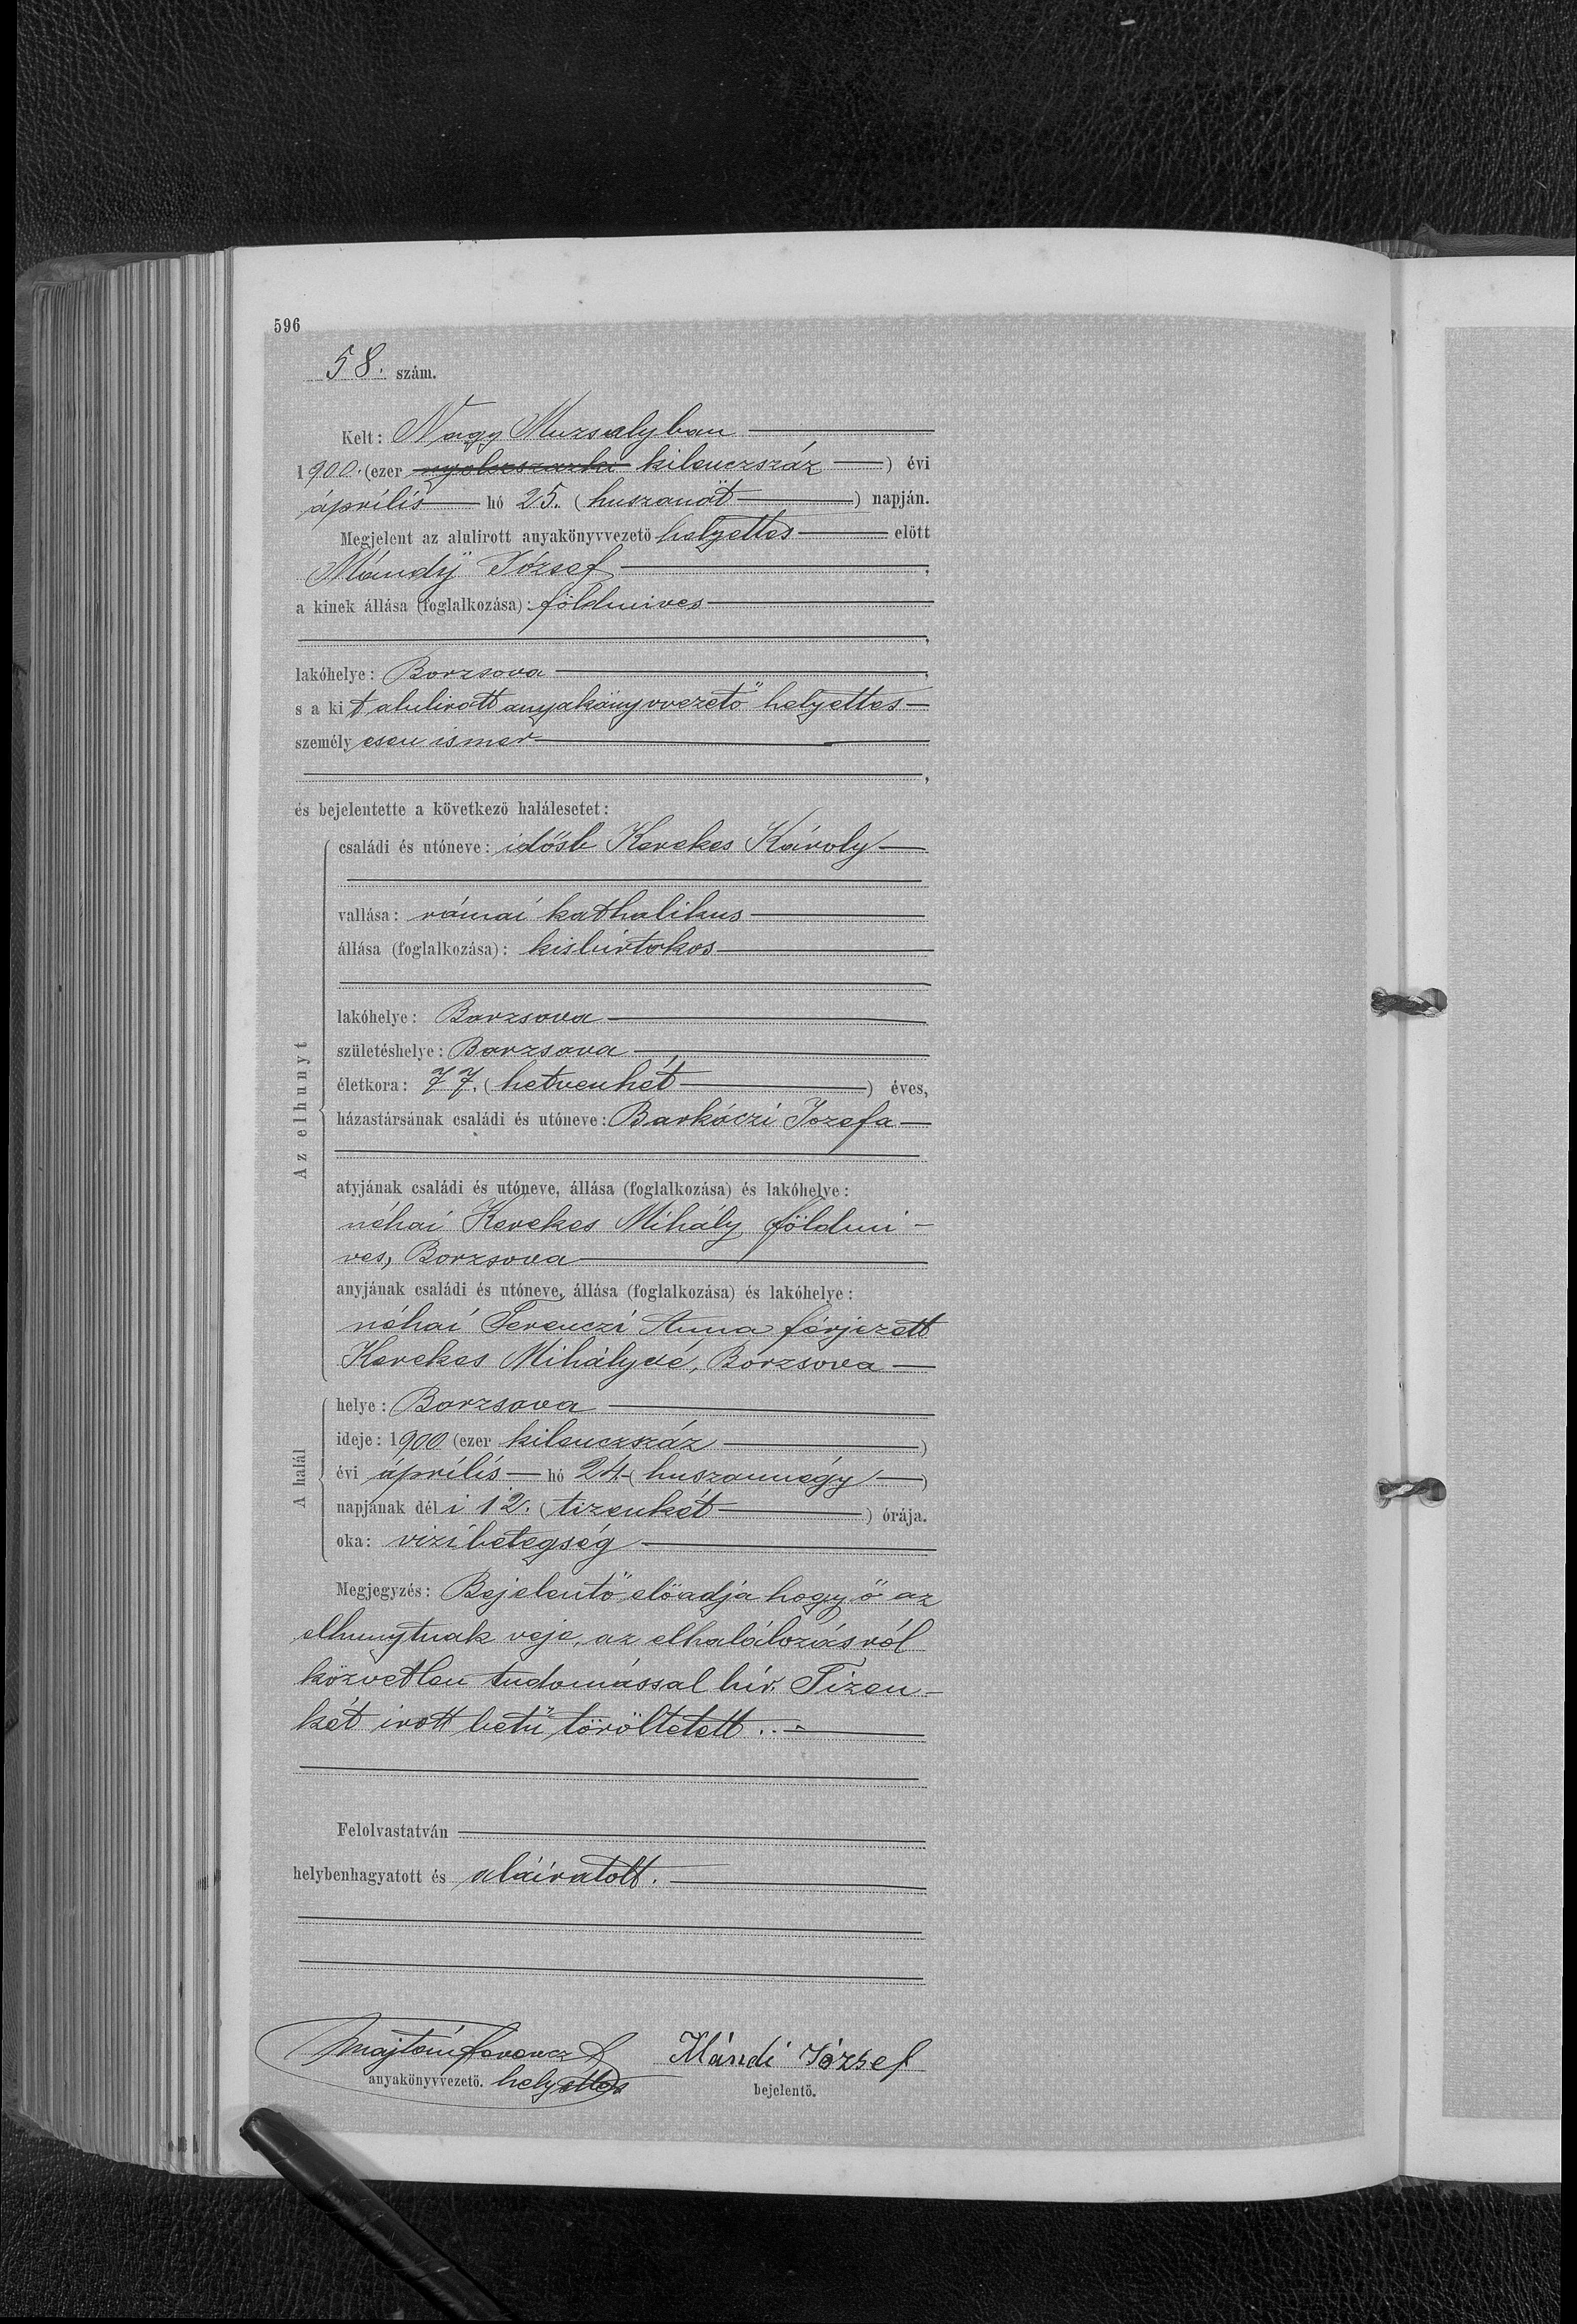 596
58. szám.
Kelt: Nagy Muzsalyban
1900. (ezer nyolczszázki kilenczszáz) évi
április hó 25. (huszonöt) napján.
Megjelent az alulirott anyakönyvvezető helyettes előtt
Mándÿ József,
a kinek állása (foglalkozása): földmives
,
lakóhelye: Borzsova,
s a kit alulirott anyakönyvvezető helyettes
személyesen ismer
,
és bejelentette a következő halálesetet:
Az elhunyt
családi és utóneve: idősb Kerekes Károly
vallása: római katholikus
állása (foglalkozása): kisbirtokos
lakóhelye: Borzsova
születéshelye: Borzsova
életkora: 77. (hetvenhét) éves,
házastársának családi és utóneve: Barkóczi Jozefa
atyjának családi és utóneve, állása (foglalkozása) és lakóhelye:
néhai Kerekes Mihály földmi-
ves, Borzsova
anyjának családi és utóneve, állása (foglalkozása) és lakóhelye:
néhai Ferenczi Anna férjezett
Kerekes Mihályné, Borzsova
A halál
helye: Borzsova
ideje: 1900 (ezer kilenczszáz)
évi április hó 24. (huszonnégy)
napjának déli 12. (tizenkét) órája.
oka: vizibetegség
Megjegyzés: Bejelentő előadja hogy ő az
elhunytnak veje, az elhalálozásról
közvetlen tudomással bír. Tizen-
két irott betű töröltetett.
Felolvastatván
helybenhagyatott és aláiratott.
Majténi Ferencz Mándi József
anyakönyvvezető. helyettes bejelentő.